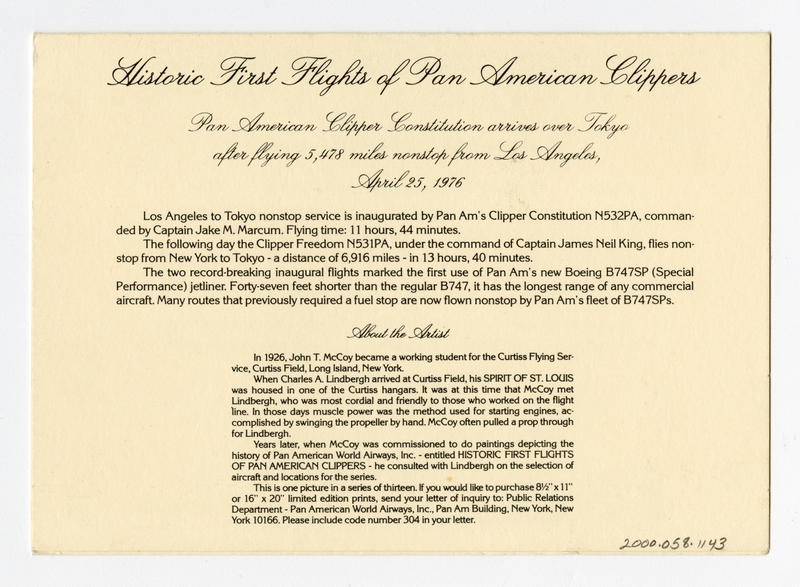 Historic First Flights of Pan American Clippers
Pan American Clipper Constitution arrives over Tokyo
after flying 5,478 miles nonstop from Los Angeles,
April 25, 1976
Los Angeles to Tokyo nonstop service is inaugurated by Pan Am's Clipper Constitution N532PA, comman-
ded by Captain Jake M. Marcum. Flying time: 11 hours, 44 minutes.
The following day the Clipper Freedom N531PA, under the command of Captain James Neil King, flies non-
stop from New York to Tokyo - a distance of 6,916 miles - in 13 hours, 40 minutes.
The two record-breaking inaugural flights marked the first use of Pan Am's new Boeing B747SP (Special
Performance) jetliner. Forty-seven feet shorter than the regular B747, it has the longest range of any commercial
aircraft. Many routes that previously required a fuel stop are now flown nonstop by Pan Am's fleet of B747SPs.
About the Artist
In 1926, John T. McCoy became a working student for the Curtiss Flying Ser-
vice, Curtiss Field, Long Island, New York.
When Charles A. Lindbergh arrived at Curtiss Field, his SPIRIT OF ST. LOUIS
was housed in one of the Curtiss hangars. It was at this time that McCoy met
Lindbergh, who was most cordial and friendly to those who worked on the flight
line. In those days muscle power was the method used for starting engines, ac-
complished by swinging the propeller by hand. McCoy often pulled a prop through
for Lindbergh.
Years later, when McCoy was commissioned to do paintings depicting the
history of Pan American World Airways, Inc. - entitled HISTORIC FIRST FLIGHTS
OF PAN AMERICAN CLIPPERS - he consulted with Lindbergh on the selection of
aircraft and locations for the series.
This is one picture in a series of thirteen. If you would like to purchase 8½" x 11"
or 16" x 20" limited edition prints, send your letter of inquiry to: Public Relations
Department - Pan American World Airways, Inc., Pan Am Building, New York, New
York 10166. Please include code number 304 in your letter.
2000.058.1143